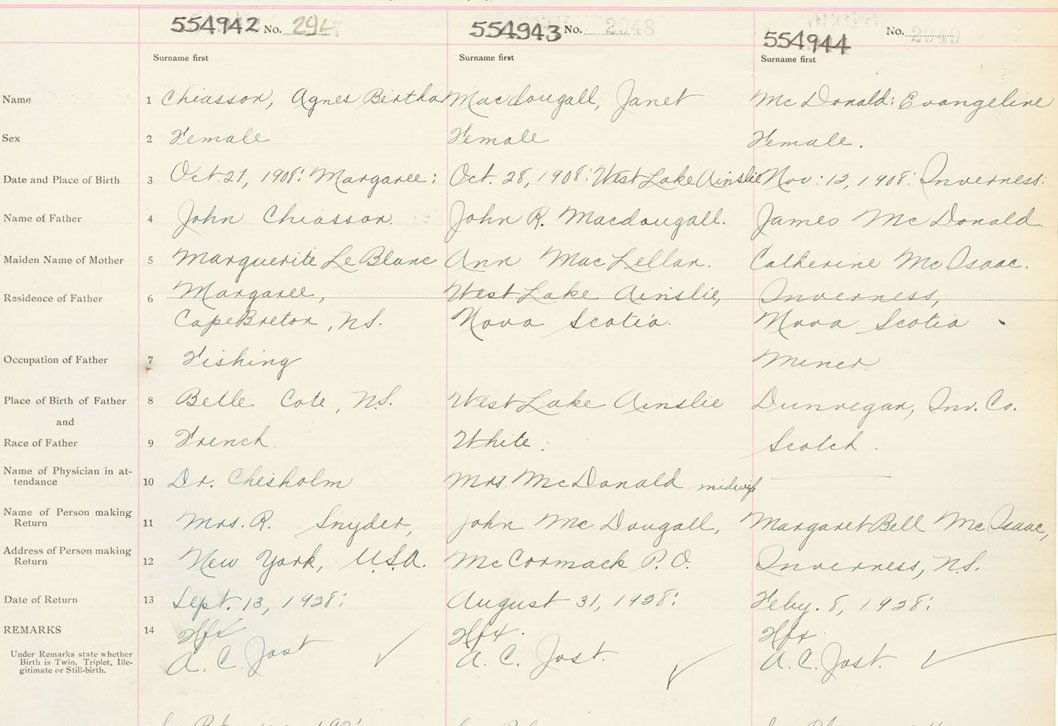 554942 No. 554943 No. 2948 554944 No. 2949
Surname first Surname first Surname first
Name 1 Chiasson, Agnes Bertha MacDougall, Janet McDonald: Evangeline
Sex 2 Female Female Female.
Date and Place of Birth 3 Oct. 21, 1908: Margaree: Oct. 28, 1908: West Lake Ainslie Nov: 12, 1908: Inverness:
Name of Father 4 John Chiasson John R. Macdougall. James McDonald
Maiden Name of Mother 5 Marguerite LeBlanc Ann MacLellan. Catherine McIsaac.
Residence of Father 6 Margaree, West Lake Ainslie, Inverness,
Cape Breton, N.S. Nova Scotia. Nova Scotia
Occupation of Father 7 Fishing Miner
Place of Birth of Father 8 Belle Cote, N.S. West Lake Ainslie Dunvegan, Inv. Co.
and
Race of Father 9 French White. Scotch
Name of Physician in at-
tendance 10 Dr. Chisholm Mrs. McDonald midwife
Name of Person making
Return 11 Mrs. R. Snyder, John McDougall, Margaret Bell McIsaac,
Address of Person making
Return 12 New York, U.S.A. McCormack P.O. Inverness, N.S.
Date of Return 13 Sept. 13, 1928: August 31, 1928: Feby. 8, 1928:
REMARKS 14 Hfx Hfx. Hfx.
Under Remarks state whether
Birth is Twin, Triplet, Ille-
gitimate or Still-birth.
A. C. Jost A. C. Jost. A. C. Jost.